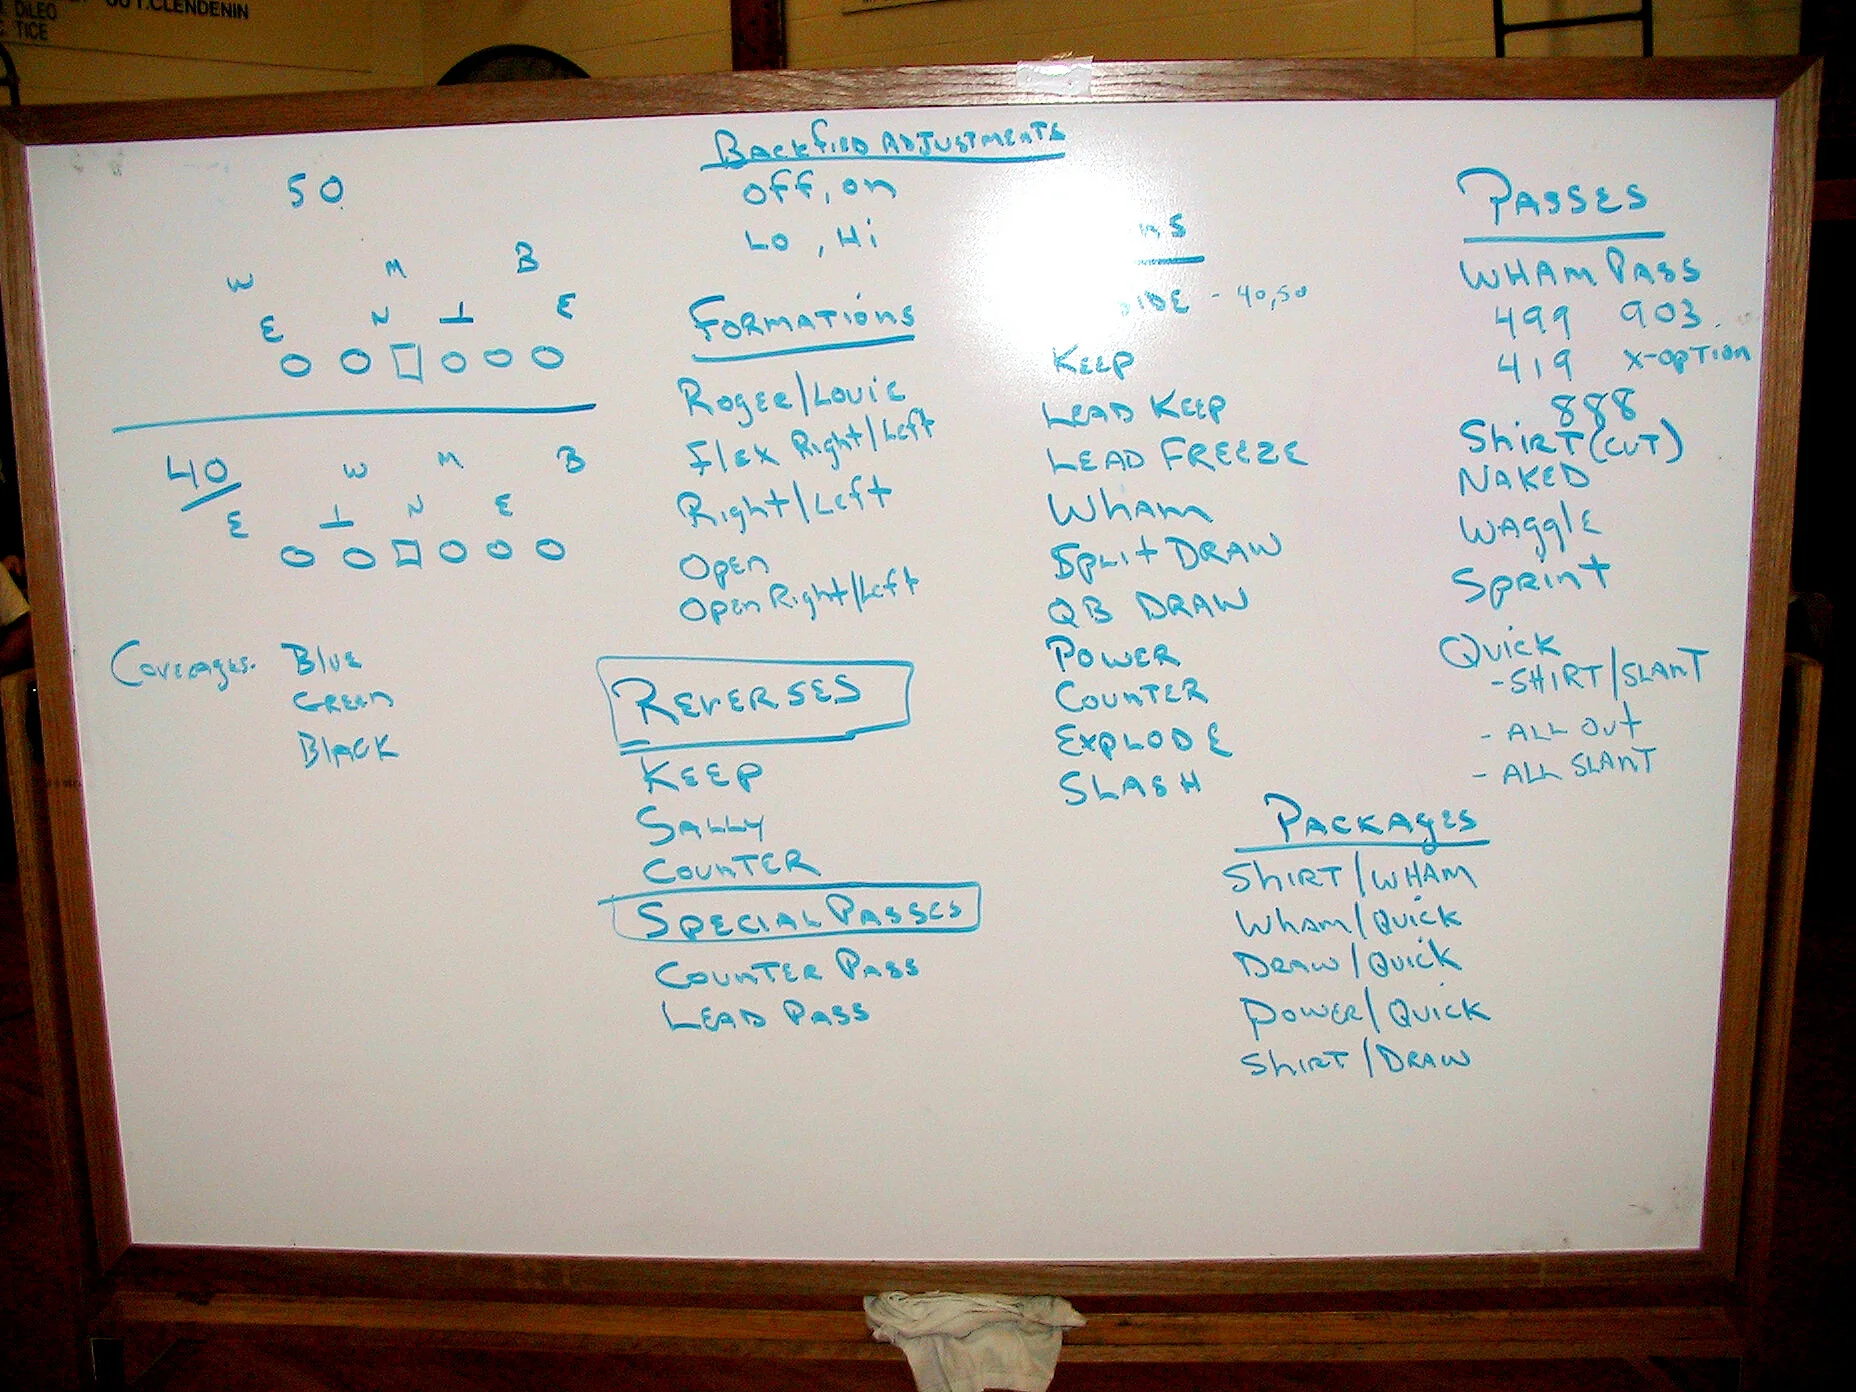 DiLEO
OUT.CLENDENIN
TICE
50
W M B
E N T E
40
W M B
E T N E
Coverages. Blue
Green
Black
BACKfiED ADJUSTMENTS
Off, on
Lo, Hi
FORMATIONS
Roger/Louie
Flex Right/Left
Right/Left
Open
Open Right/Left
REVERSES
KEEP
SALLY
COUNTER
SPECIAL PASSES
COUNTER PASS
LEAD PASS
NS
IDE - 40,50
KEEP
LEAD KEEP
LEAD FREEZE
WHAM
Split DRAW
QB DRAW
POWER
COUNTER
EXPLODE
SLASH
PASSES
WHAM PASS
499 903.
419 X-OPTION
888
SHIRT (CUT)
NAKED
WAGGLE
SPRINT
Quick
-SHIRT/SLANT
- ALL OUT
- ALL SLANT
PACKAGES
SHIRT/WHAM
WHAM/QUICK
DRAW/QUICK
POWER/QUICK
SHIRT/DRAW